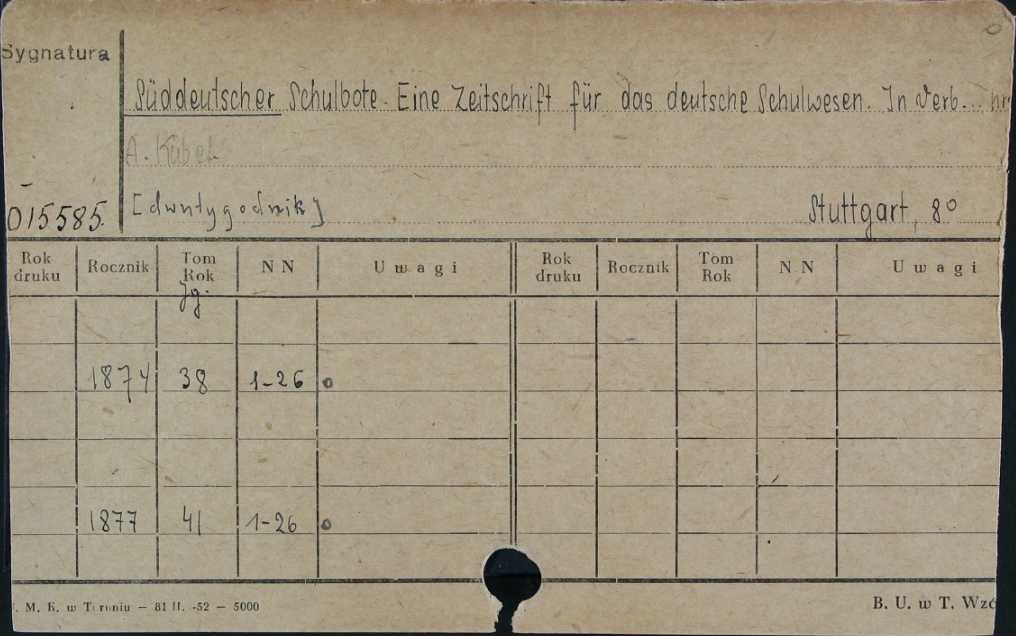 Sygnatura
Süddeutscher Schulbote. Eine Zeitschrift für das deutsche Schulwesen. In Verb...
A.
015585. [dwutygodnik] Stuttgart, 8°
Rok druku Rocznik Tom Rok NN Uwagi Rok druku Rocznik Tom Rok N N Uwagi
Jg.
1874 38 1-26 o
1877 41 1-26 o
M. K. w Toruniu — 81 II. -52 — 5000 B. U. w T. Wzó